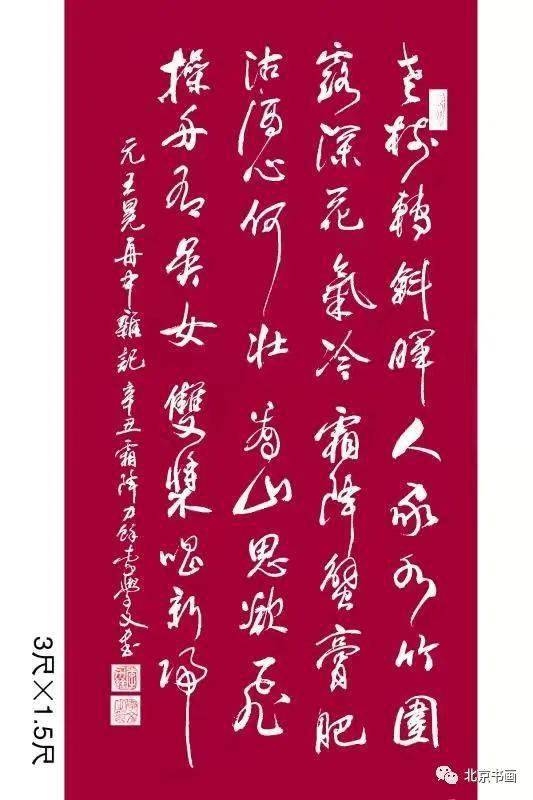 老樹轉斜暉人家水竹圍
露深花氣冷霜降蟹膏肥
沽酒心何壯看山思欲飛
操舟有吳女雙槳唱新歸
元王冕舟中雜記辛丑霜降 學文書
3尺×1.5尺
北京书画